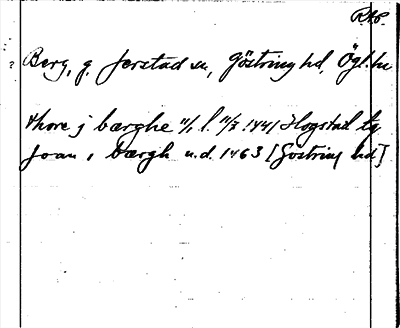 RAP.
? Berg, g. Jerstad sn, Göstring hd, Ögl. ln
thore j bærghe 11/1 l. 11/3 1441 Hogstad tg
Joan i bærgh u.d. 1463 [Göstring hd]